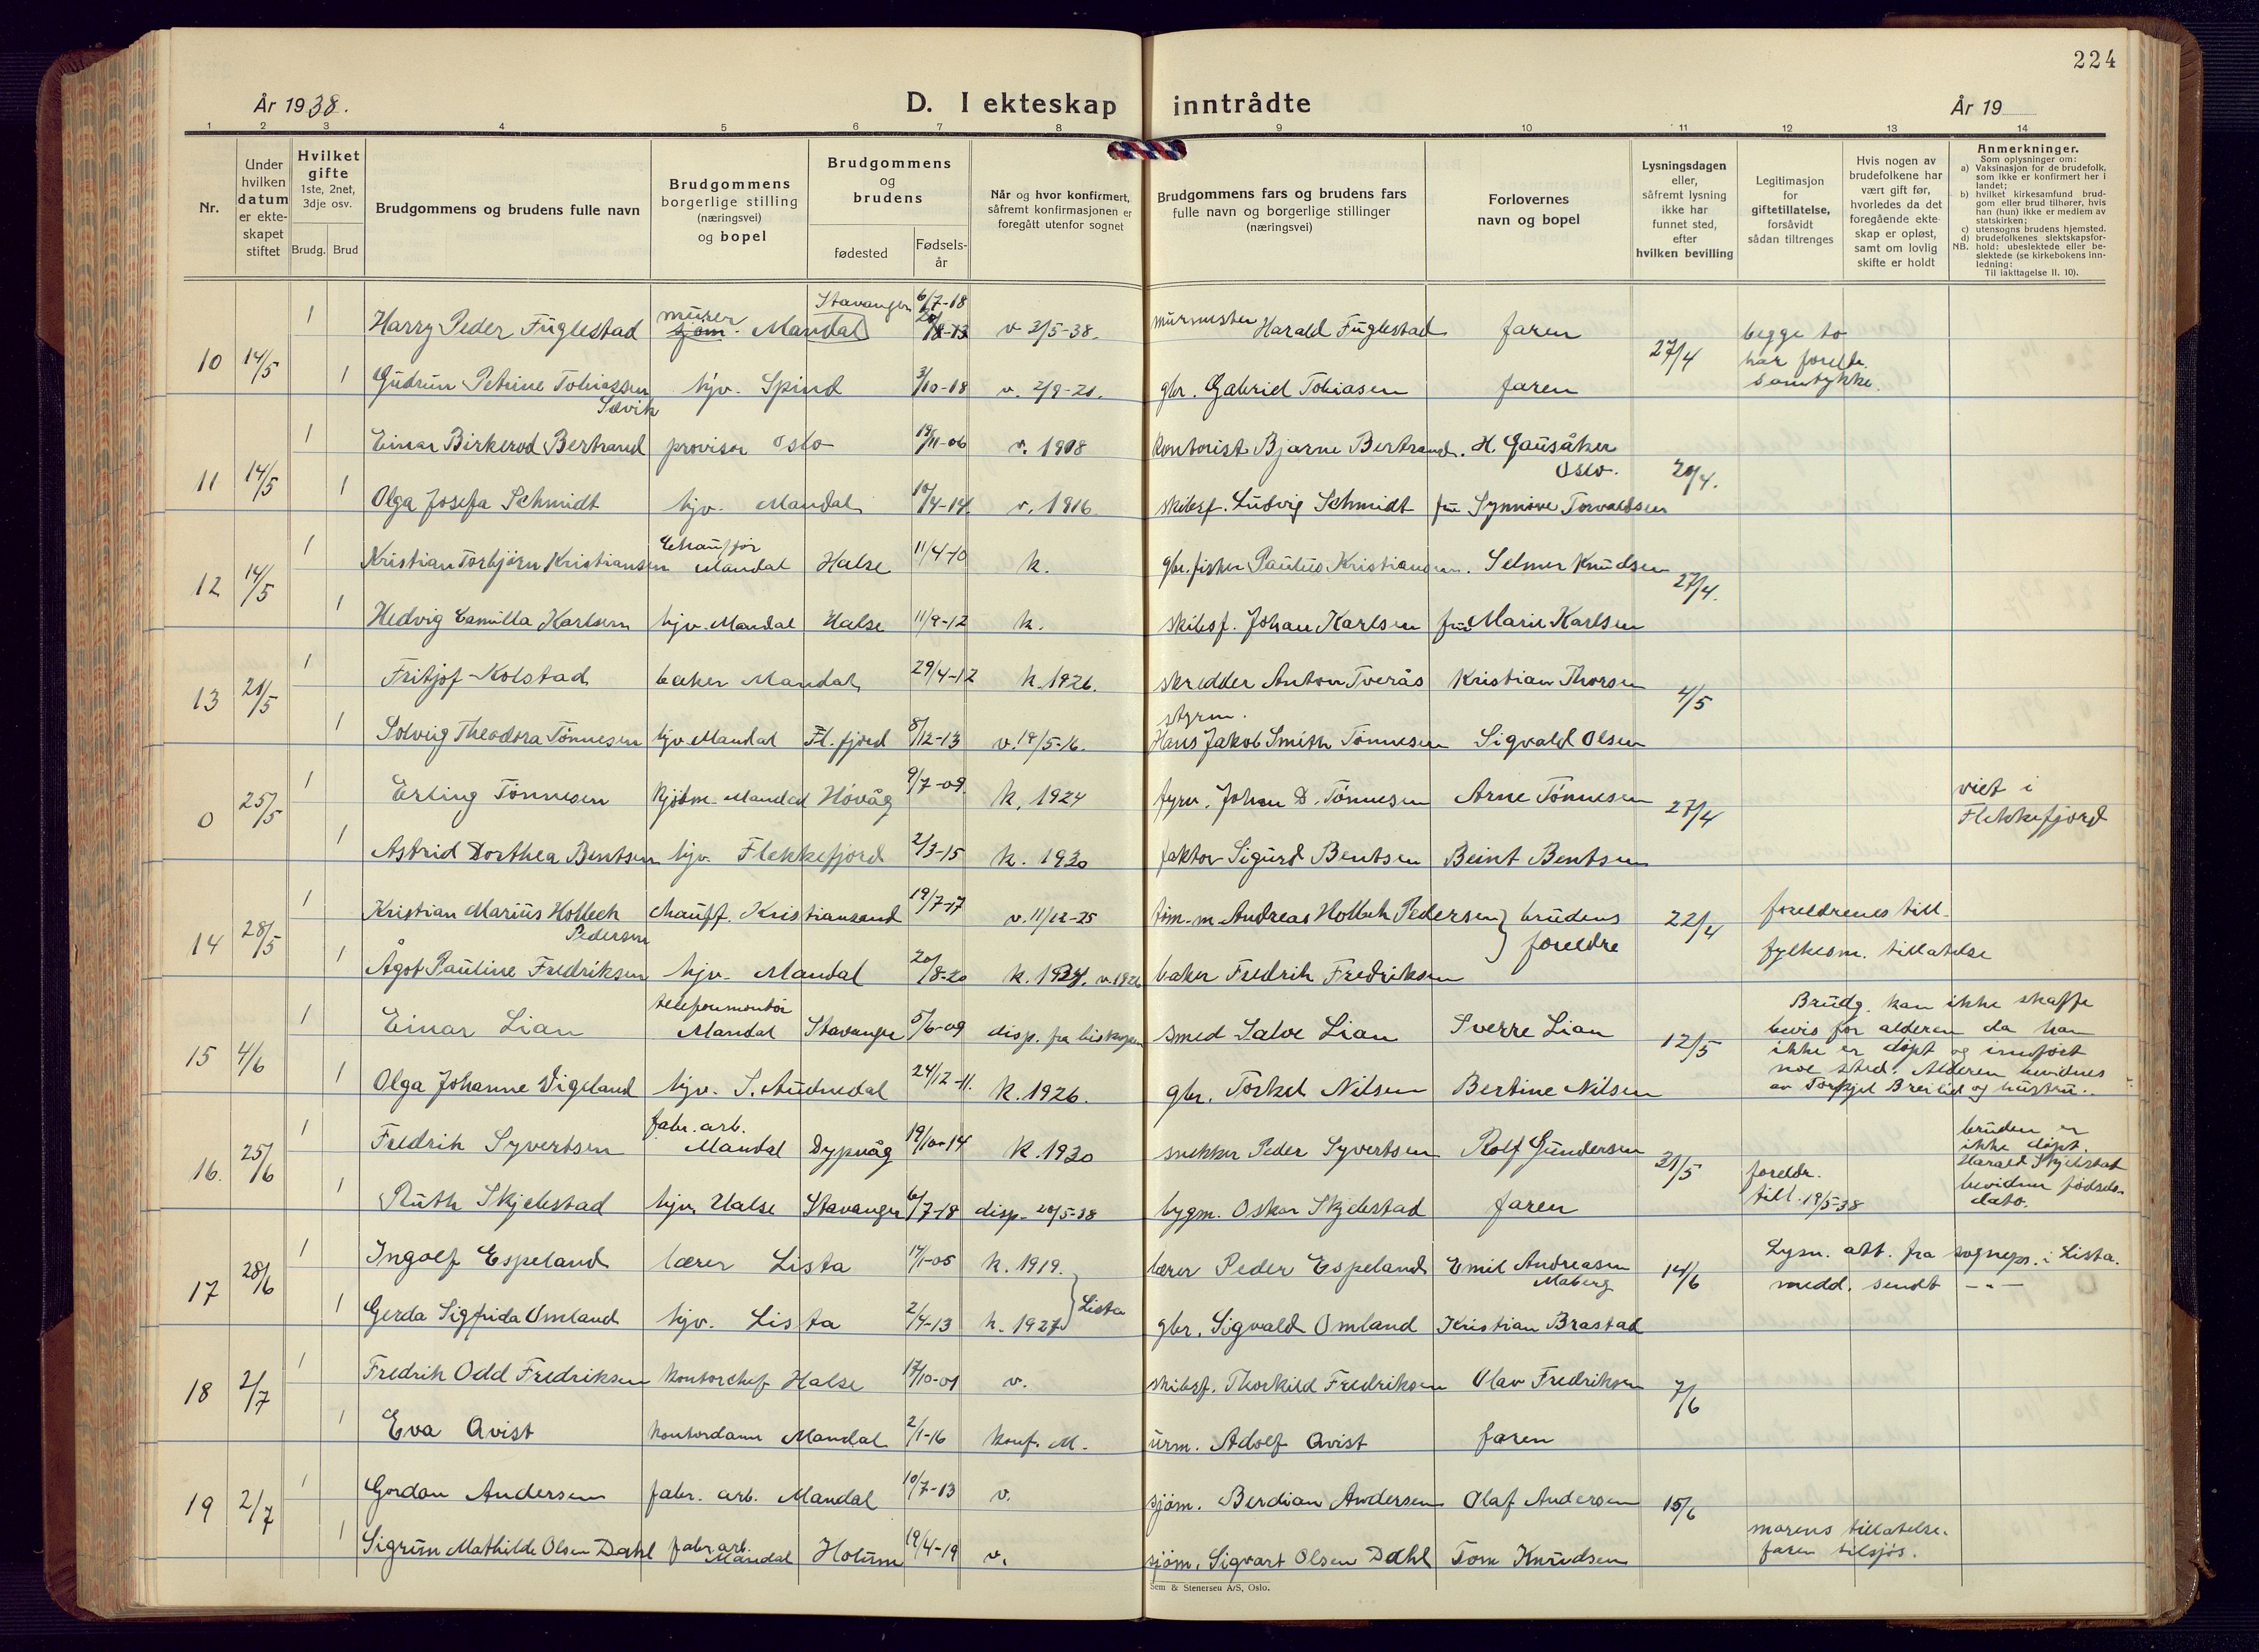 224
År 1938.
D. I ekteskap inntrådte
År 19
1 2 3 4 5 6 7 8 9 10 11 12 13 14
Nr.
Under hvilken datum er ekteskapet stiftet
Hvilket gifte
1ste, 2net, 3dje osv.
Brudg. Brud
Brudgommens og brudens fulle navn
Brudgommens borgerlige stilling (næringsvei) og bopel
Brudgommens og brudens
fødested
Fødselsår
Når og hvor konfirmert, såfremt konfirmasjonen er foregått utenfor sognet
Brudgommens fars og brudens fars fulle navn og borgerlige stillinger (næringsvei)
Forlovernes navn og bopel
Lysningsdagen eller, såfremt lysning ikke har funnet sted, efter hvilken bevilling
Legitimasjon for giftetillatelse, forsåvidt sådan tiltrenges
Hvis nogen av brudefolkene har vært gift før, hvorledes da det foregående ekteskap er opløst, samt om lovlig skifte er holdt
Anmerkninger.
Som oplysninger om:
a) Vaksinasjon for de brudefolk, som ikke er konfirmert her i landet;
b) hvilket kirkesamfund brudgom eller brud tilhører, hvis han (hun) ikke er medlem av statskirken;
c) utensogns brudens hjemsted.
d) brudefolkenes slektskapsforhold: ubeslektede eller beslektede (se kirkebokens innledning:
NB. Til iakttagelse II. 10).
10 14/5 1 Harry Peder Fuglestad murer sjøm. Mandal Stavanger 6/7-18 v 2/5-38. murmester Harald Fuglestad faren 27/4 begge to har foreldr. samtykke.
1 Gudrun Petrine Tobiassen Sævik hjv. Spind 3/10-18 v. 2/9-21. gbr. Gabriel Tobiasen faren
11 14/5 1 Einar Birkerod Bertrand provisor Oslo 19/11-06 v. 1908 kontorist Bjarne Bertrand. H. Gausåker Oslo. 29/4.
1 Olga Josefa Schmidt hjv. Mandal 10/4-14. v. 1916 skibsf. Ludvig Schmidt fru Synnøve Torvaldsen
12 14/5 1 Kristian Torbjørn Kristiansen Chauffør Mandal Halse 11/4-10 k. gbr. fisker Paulus Kristiansen. Selmer Knudsen 27/4.
1 Hedvig Camilla Karlsen hjv. Mandal Halse 11/9-12 k. skibsf. Johan Karlsen fru Marie Karlsen
13 21/5 1 Fritjof Kolstad baker Mandal 29/4-12 k. 1926. skredder Anton Tverås Kristian Thorsen 4/5
1 Solveig Theodora Tønnesen hjv. Mandal Fl. fjord 8/12-13 v. 18/5-16. styrm. Hans Jakob Smith Tønnesen Sigvald Olsen
0 25/5 1 Erling Tønnesen Kjøbm. Mandal Høvåg 9/7-09. k. 1924 fyrv. Johan D. Tønnesen Arne Tønnesen 27/4 viet i Flekkefjord
1 Astrid Dorthea Bentsen hjv. Flekkefjord 2/3-15 k. 1930 faktor Sigurd Bentsen Beint Bentsen
14 28/5 1 Kristian Marius Holbech Pedersen chauff. Kristiansand 19/7-17 v. 11/12-25 tøm.m. Andreas Holbek Pedersen brudens foreldre 22/4 foreldrenes till.
1 Ågot Pauline Fredriksen hjv. Mandal 20/8-20 k. 1934. v. 1926 baker Fredrik Fredriksen fylkesm. tillatelse
15 4/6 1 Einar Lian telefonmontør Mandal Stavanger 5/6-09 disp. fra biskopen smed Salve Lian Sverre Lian 12/5 Brudg. kan ikke skaffe bevis for alderen da han ikke er døpt og innført noe sted. Alderen bevidnes av Torkjel Breilid og hustru.
1 Olga Johanne Vigeland hjv. S. Audnedal 24/12-11. k. 1926. gbr. Torkel Nilsen Bertine Nilsen
16. 25/6 1 Fredrik Syvertsen fabr. arb. Mandal Dypvåg 19/10-14 k. 1930 snekker Peder Syvertsen Rolf Gundersen 31/5 bruden er ikke døpt. Harald Skjelstad bevidner fødselsdato.
1 Ruth Skjelestad hjv. Halse Stavanger 6/7-18 disp. 20/5-38 bygm. Oskar Skjelestad faren foreldr. till. 19/5-38
17 28/6 1 Ingolf Espeland lærer Lista 17/1-05 k. 1919. lærer Peder Espeland Emil Andreasen Maberg 14/6 Lysn. att. fra sognepr. i Lista. medd. sendt —"—
1 Gerda Sigfrida Omland hjv. Lista 2/4-13 k. 1927 Lista gbr. Sigvald Omland Kristian Brastad
18 2/7 1 Fredrik Odd Fredriksen kontorchef Halse 17/10-01 v. skibsf. Thorkild Fredriksen Olav Fredriksen 7/6
1 Eva Qvist kontordame Mandal 2/1-16 konf. M. urm. Adolf Qvist faren
19 2/7 1 Gordon Andersen fabr. arb. Mandal 10/7-13 v. sjøm. Berdian Andersen Olaf Andersen 15/6
1 Sigrun Mathilde Olsen Dahl fabr. arb. Mandal Holum 19/4-19 v. sjøm. Sigvart Olsen Dahl Tom Knudsen morens tillatelse. faren tilsjøs.
Sem & Stenersen A/S, Oslo.